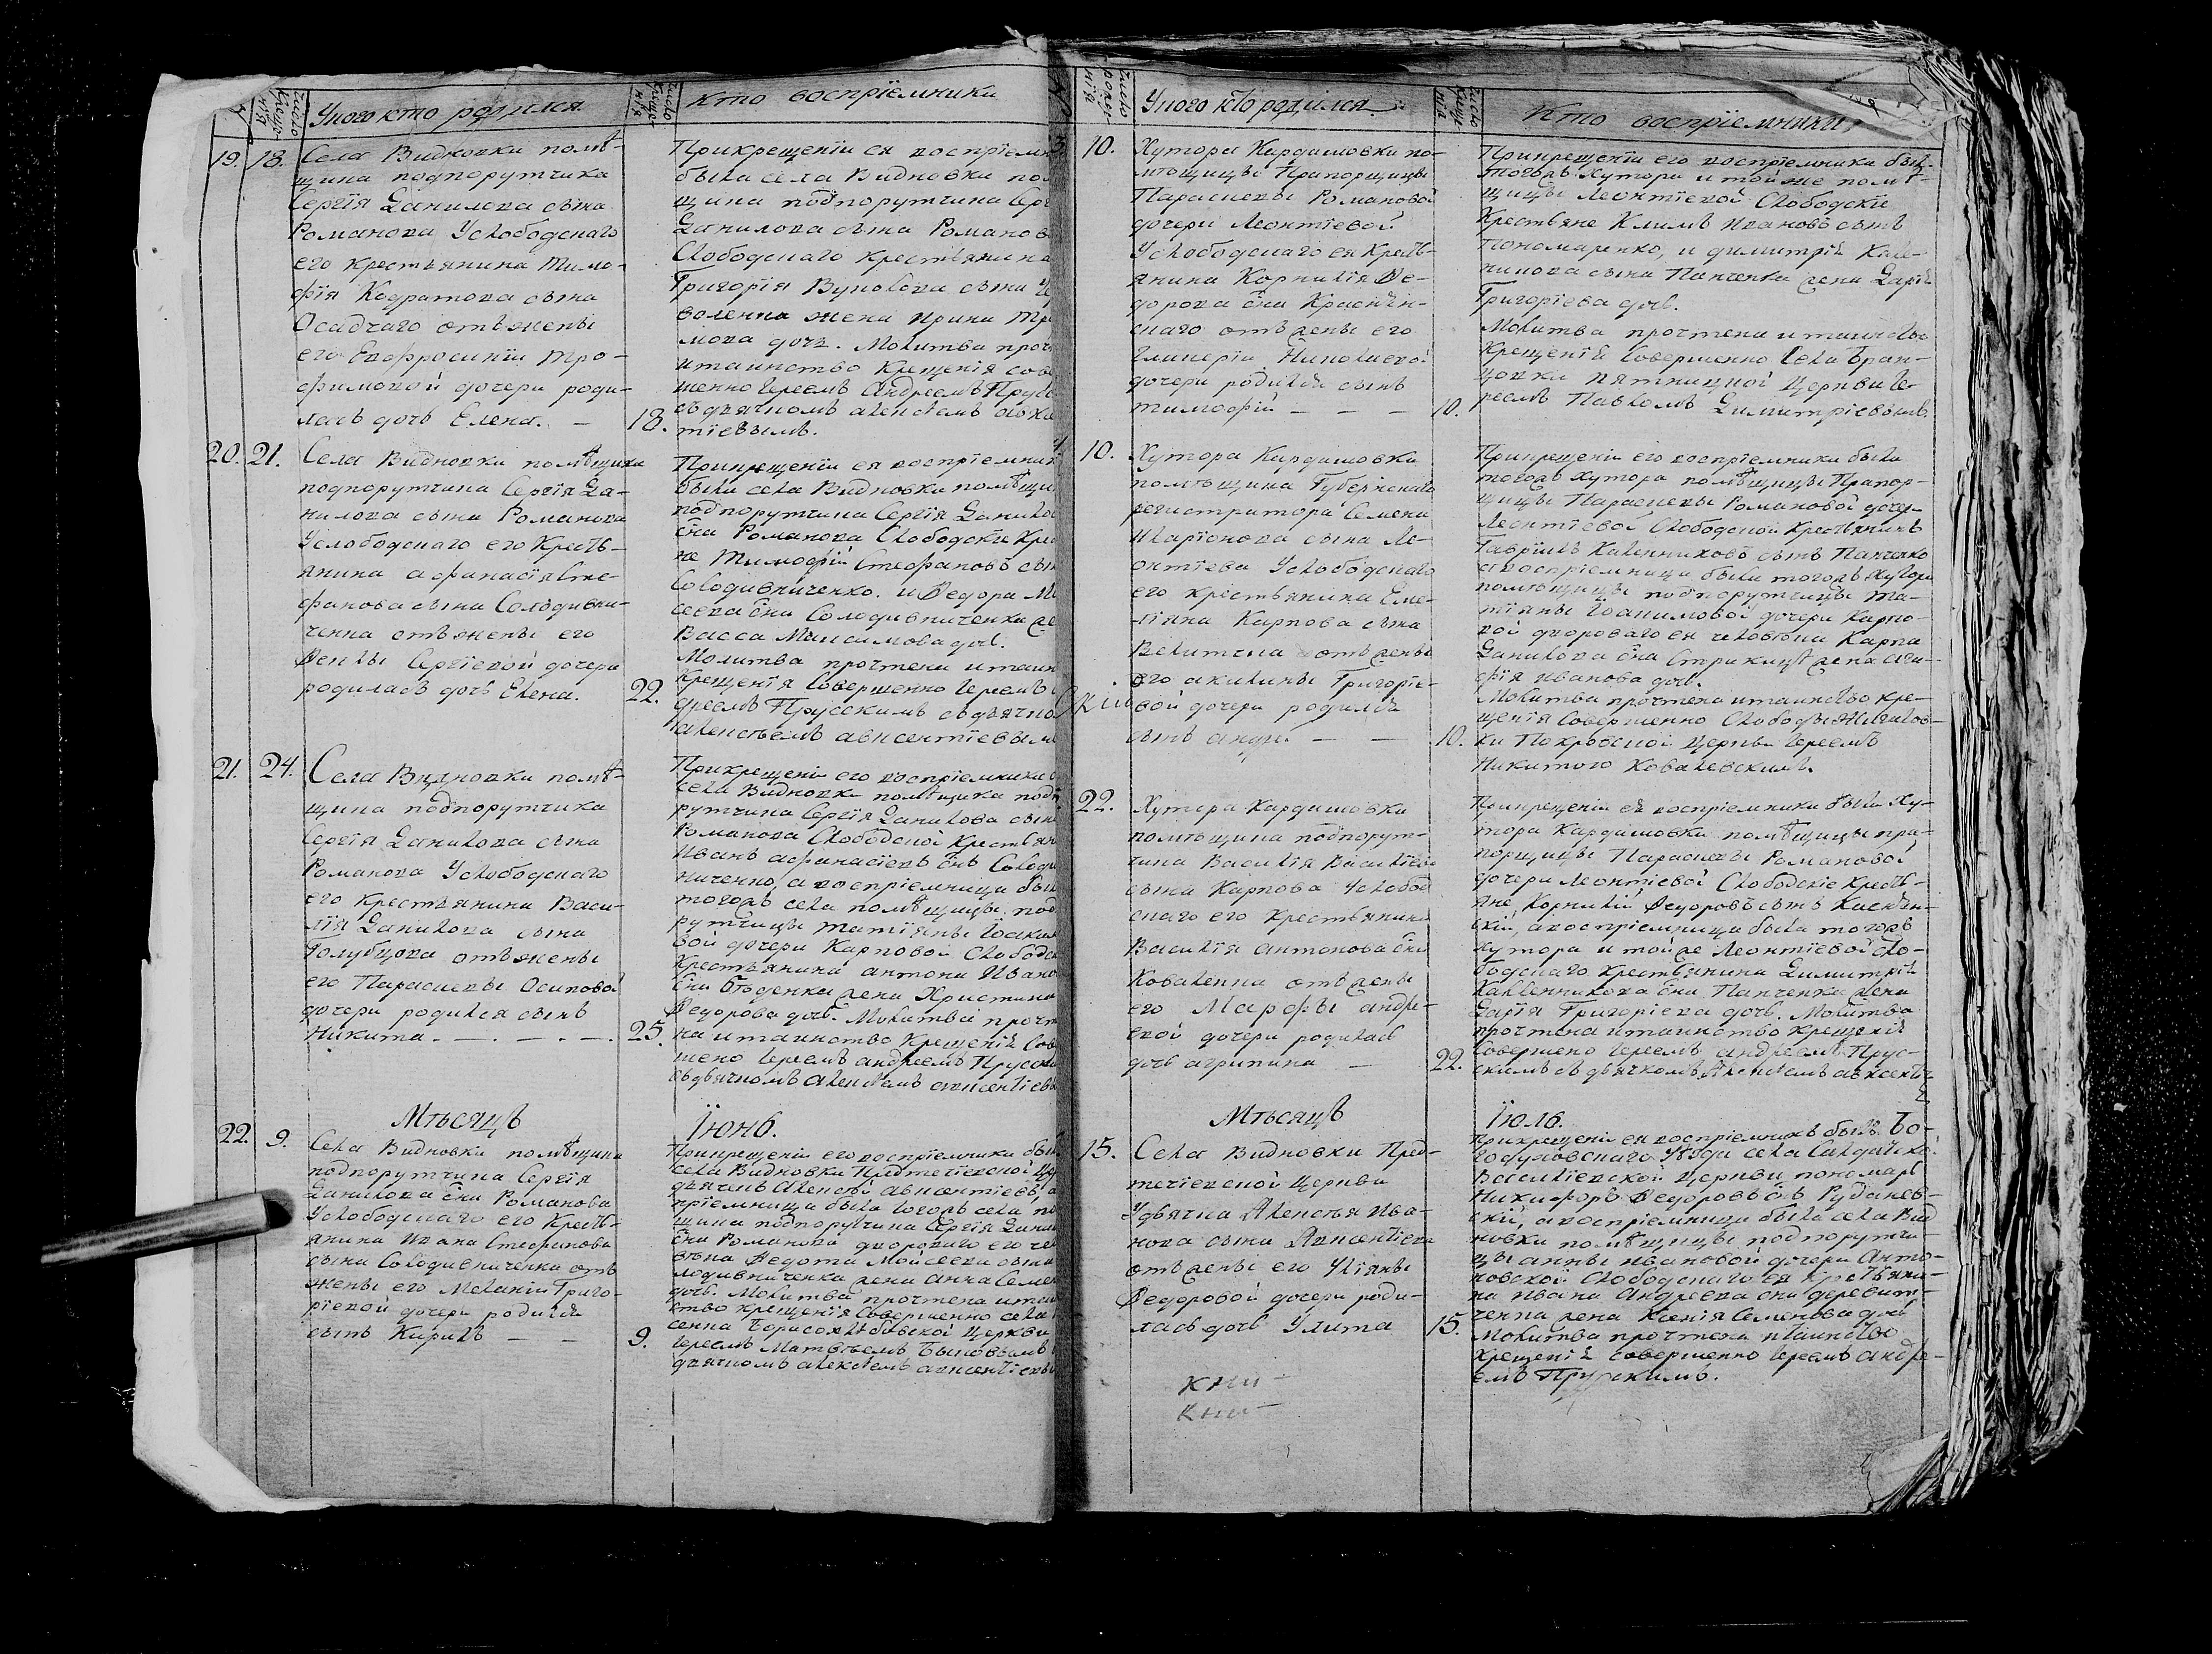 У кого кто родился
Кто восприемники
19. 18. Села Видновки помѣ-
щика подпорутчика
Сергія Данилова сына
Романова Услободскаго
его крестьянина Тимо-
фія Кодратова сына
Осадчаго отъ жены
его Евфросиніи Тро-
фимовой дочери роди-
лась дочь Елена. — 18.
При крещеніи ея восприем
была села Видновки по
щика подпорутчика Сер
Данилова сына Романов
Слободскаго крестьянина
Григорія Вуколова сына
воленка жена Ирина Тр
мова дочь. Молитва проч
и таинство крещенія сове
шенно Іереемъ Андреемъ Прус
съ дьячкомъ Алексѣемъ Авксе
тіевымъ.
20. 21. Села Видновки помѣщика
подпорутчика Сергія Да-
нилова сына Романова
Услободскаго его кресть-
янина Афанасія Сте-
фанова сына Солодивни-
ченка отъ жены его
Феклы Сергіевой дочери
родилась дочь Елена. 22.
При крещеніи ея восприемник
были села Видновки помѣщи
подпорутчика Сергія Данило
сна Романова Слободскіе кре
не Тимофій Стефановъ сын
Солодивниченко. и Федора М
сеева сна Солодивниченка же
Васса Максимова дочь.
Молитва прочтена и таин
крещенія совершенно Іереемъ
дреемъ Прусскимъ съ дьячко
Алексѣемъ Авксентіевым
21. 24. Села Видновки помѣ-
щика подпорутчика
Сергія Данилова сына
Романова Услободскаго
его крестьянина Васи-
лія Данилова сына
Голубцова отъ жены
его Параскевы Осиповой
дочери родился сынъ
Никита. — . — . — . 25.
При крещеніи его восприемники
села Видновки помѣщика подп
рутчика Сергія Данилова сын
Романова Слободской крестьян
Иванъ Афанасіевъ снъ Солоди
ниченко, а восприемница был
тогожъ села помѣщицы под
рутчицы Татіяны Іоаким
вой дочери Карповой Слободс
крестьянина Антона Ивано
сна жена Христина
Федорова дочь. Молитва прочт
на и таинство крещенія сов
шено Іереемъ Андреемъ Прусск
съ дьячкомъ Алексѣемъ Авксентіев
Мѣсяцъ Іюнь.
22. 9. Села Видновки помѣщика
подпорутчика Сергія
Данилова сна Романова
Услободскаго его кресть-
янина Ивана Стефанова
сына Солодивниченка отъ
жены его Меланіи Григо-
ріевой дочери родился
сынъ Кирилъ — — 9.
При крещеніи его восприемники был
села Видновки Предтечіевской Цер
дьячекъ Алексѣй Авксентіевъ, а
пріемница была тогожъ села по
щика подпорутчика Сергія Дани
сна Романова двороваго его че
вѣка Федота Моисеева сына
лодивниченка жена Анна Семен
дочь. Молитва прочтена и таин
ство крещенія совершенно села
сенна Борисоглѣбовской Церкви
Іереемъ Матвѣемъ Быковымъ
дьячкомъ Алексѣемъ Авксентіевы
У кого кто родился
Кто восприемники
10. Хутора Кардашовки по-
мѣщицы Прапорщицы
Параскевы Романовой
дочери Леонтіевой
Услободскаго ея кресть-
янина Корнилія Фе-
дорова сна
скаго отъ жены его
Гликеріи Николаевой
дочери родился сынъ
Тимофій — — — 10.
При крещеніи его восприемники был
тогожъ Хутора и тойже помѣ-
щицы Леонтіевой Слободскіе
крестьяне Климъ Ивановъ сынъ
Пономаренко, и Димитрія Кале-
никова сына Панченка жена Дарія
Григоріева дочь.
Молитва прочтена и таинство
крещенія совершенно села Бран-
цовки Пятницкой Церкви Іе-
реемъ Павломъ Димитріевымъ.
10. Хутора Кардашовки
помѣщика Губернскаго
регистратора Семена
Иларіонова сына Ле-
онтіева Услободскаго
его крестьянина Еме-
ліяна Карпова сына
отъ жены
его Акилины Григоріе-
вой дочери родился
сынъ Андрей — — 10.
При крещеніи его восприемники были
тогожъ Хутора помѣщицы Прапор-
щицы Параскевы Романовой дочери
Леонтіевой Слободской крестьянинъ
Гавріилъ Каленниковъ сынъ Панченко
а восприемница была тогожъ Хутора
помѣщицы подпорутчицы Та-
тіяны Іоакимовой дочери Карпо-
вой двороваго ея человѣка Карпа
Данилова сна жена Ага-
фія Иванова дочь.
Молитва прочтена и таинство кре-
щенія совершенно Слободы
ки Покровской Церкви Іереемъ
Никитою Ковалевскимъ.
22. Хутора Кардашовки
помѣщика подпорут-
чика Василія Василіева
сына Карпова Услобод
скаго его крестьянина
Василія Антонова сна
Коваленка отъ жены
его Марфы Андре-
евой дочери родилась
дочь Агрипина — 22.
При крещеніи ея восприемники были Ху-
тора Кардашовки помѣщицы пра-
порщицы Параскевы Романовой
дочери Леонтіевой Слободскіе кресть-
яне Корнилій Федоровъ сынъ
скій, а восприемница была тогожъ
Хутора и тойже Леонтіевой Сло-
бодскаго крестьянина Димитрія
Каленникова сна Панченка жена
Дарія Григоріева дочь. Молитва
прочтена и таинство крещенія
совершено Іереемъ Андреемъ Прус-
скимъ съ дьячкомъ Алексѣемъ Авксенті
Мѣсяцъ Іюль.
15. Села Видновки Пред-
течіевской Церкви
У дьячка Алексѣя Ива-
нова сына Авксентіева
отъ жены его Уліяны
Федоровой дочери роди-
лась дочь Улита 15.
При крещеніи ея восприемникъ былъ Бо-
годуховскаго уѣзда села
Василіевской Церкви пономарь
Никифоръ Федоровъ снъ Рудинев-
скій, а восприемница была села Вид
новки помѣщицы подпорутчи-
цы Анны Ивановой дочери Анто-
новской Слободскаго ея крестьяни-
на Ивана Андреева сна
ченка жена Ксенія Семенова дочь
Молитва прочтена и таинство
крещенія совершенно Іереемъ Андре-
емъ Прускимъ.
кни-
кни-